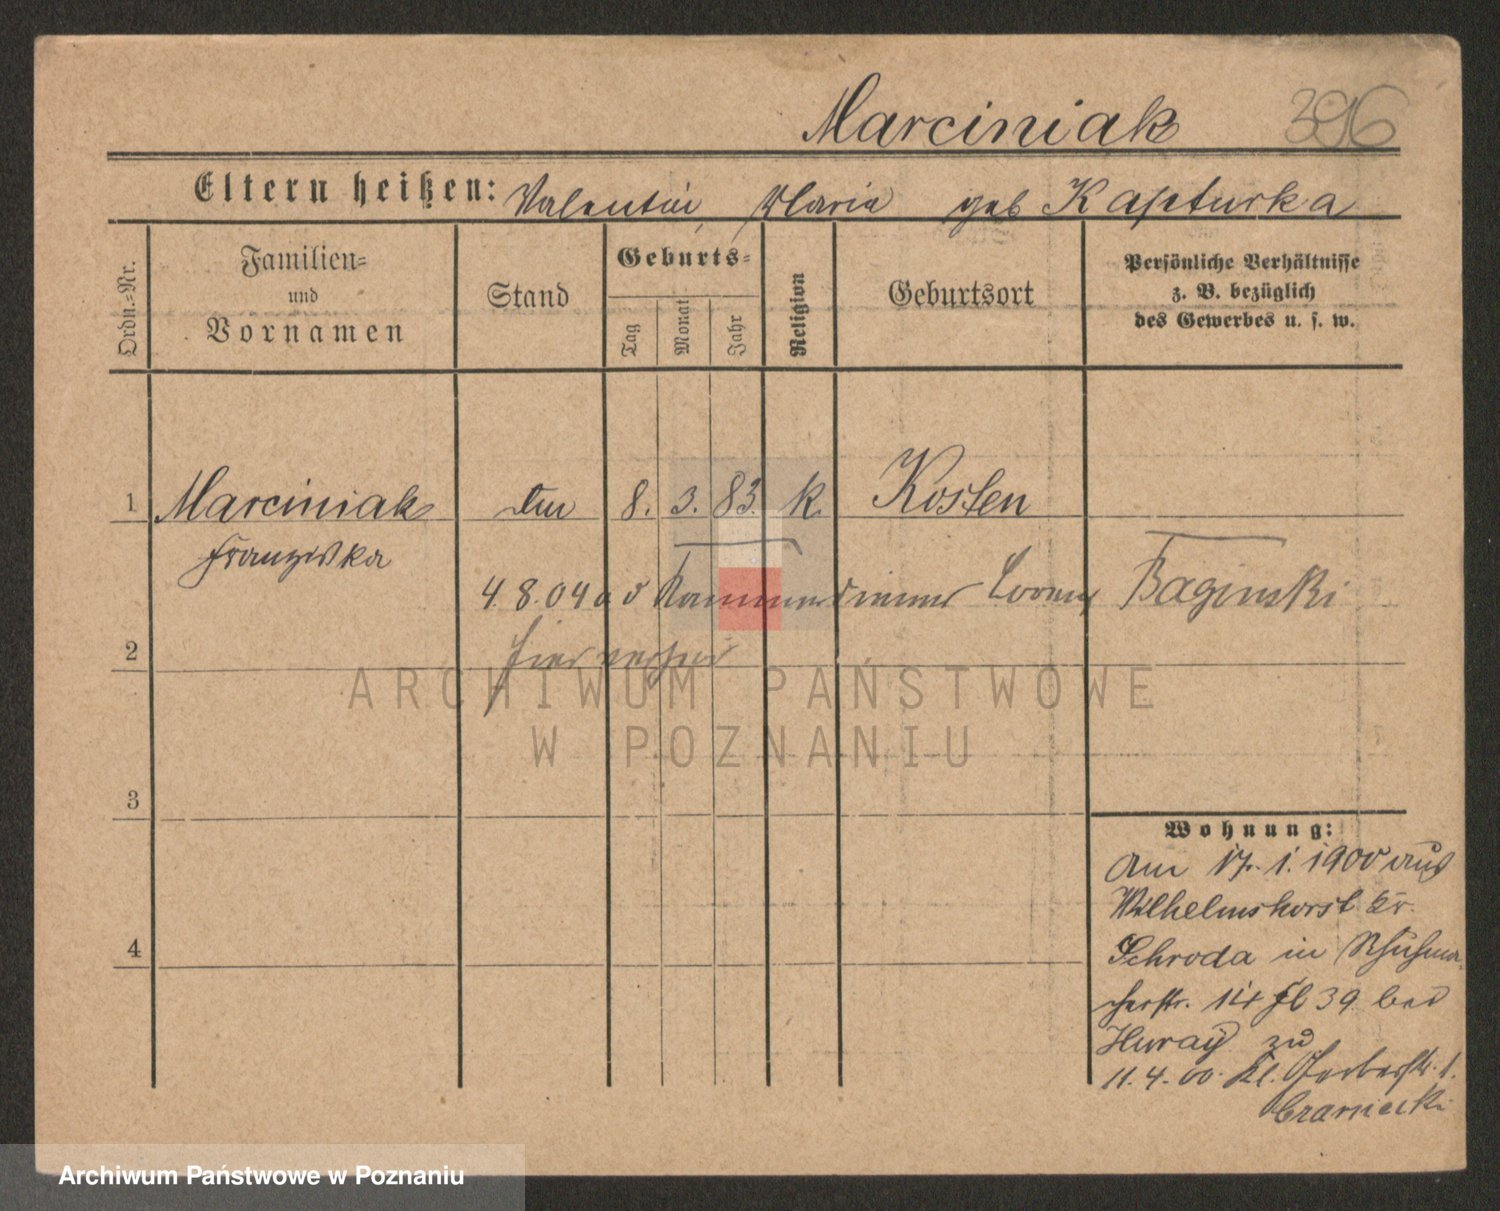 Marciniak 396
Eltern heißen: Valentin, Maria geb Kapturka
Ordn.=Nr.
Familien=
und
Vornamen
Stand
Geburts=
Tag
Monat
Jahr
Religion
Geburtsort
Persönliche Verhältnisse
z. B. bezüglich
des Gewerbes u. s. w.
1 Marciniak 8. 3. 83. k. Kosten
Franziska
4.8.04 Lorenz Baginski
hier
2
ARCHIWUM PAŃSTWOWE
W POZNANIU
3
Wohnung:
Am 17.1.1900 aus
Wilhelmshorst Kr.
Schroda in Schuhma-
cherstr. 14 39 bei
Huray zu
11.4.00. Kl. Gerberstr. 1.
Czarnecki
4
Archiwum Państwowe w Poznaniu